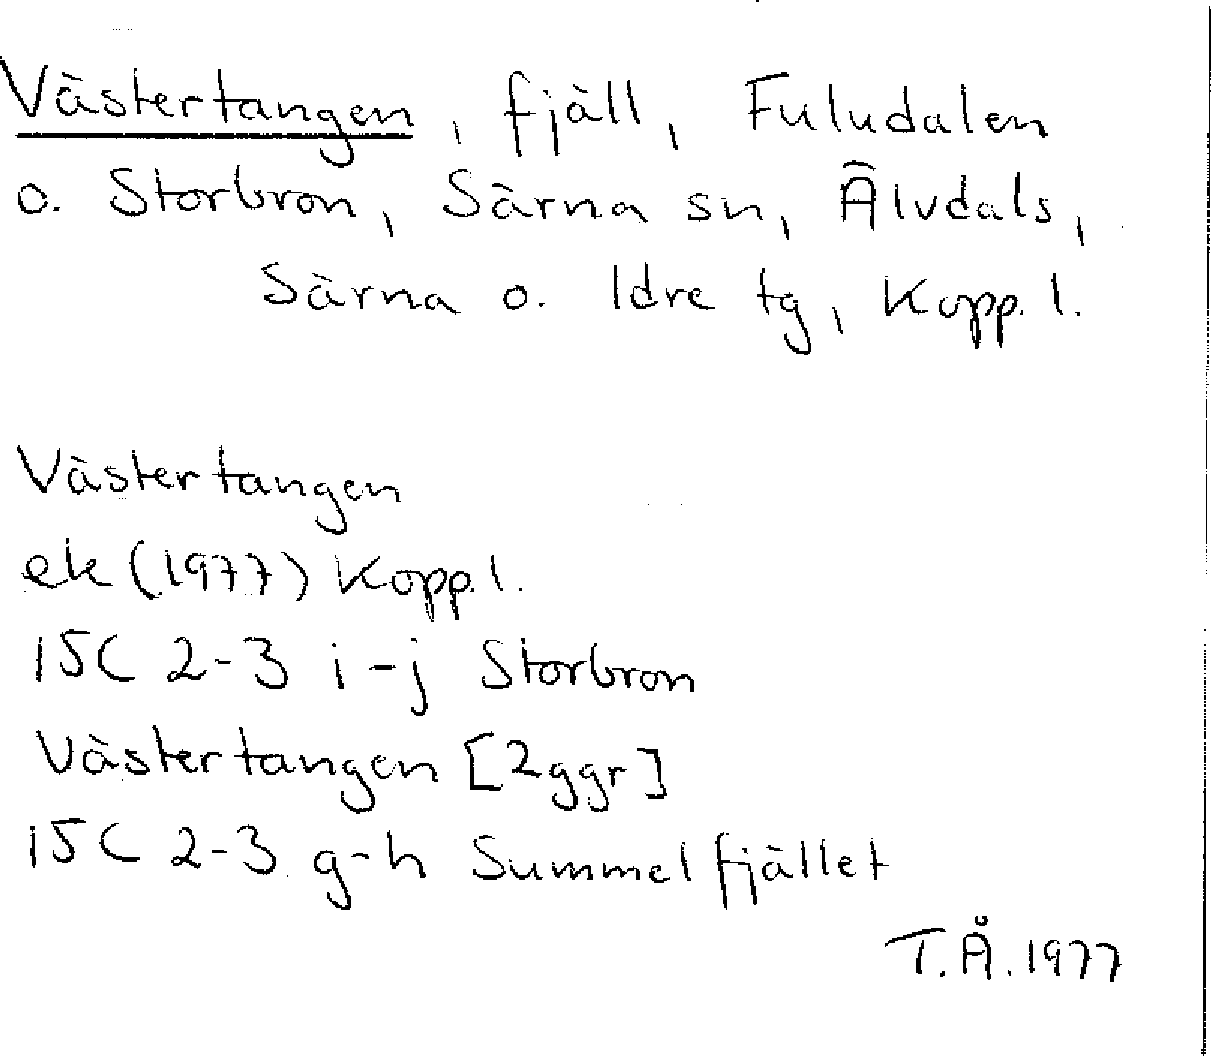 Västertangen, fjäll, Fuludalen
o. Storbron, Särna sn, Älvdals,
Särna o. Idre tg, Kopp. l.
Västertangen
ek (1977) Kopp. l.
15C 2-3 i-j Storbron
Västertangen [2ggr]
15C 2-3 g-h Summelfjället
T.Å. 1977